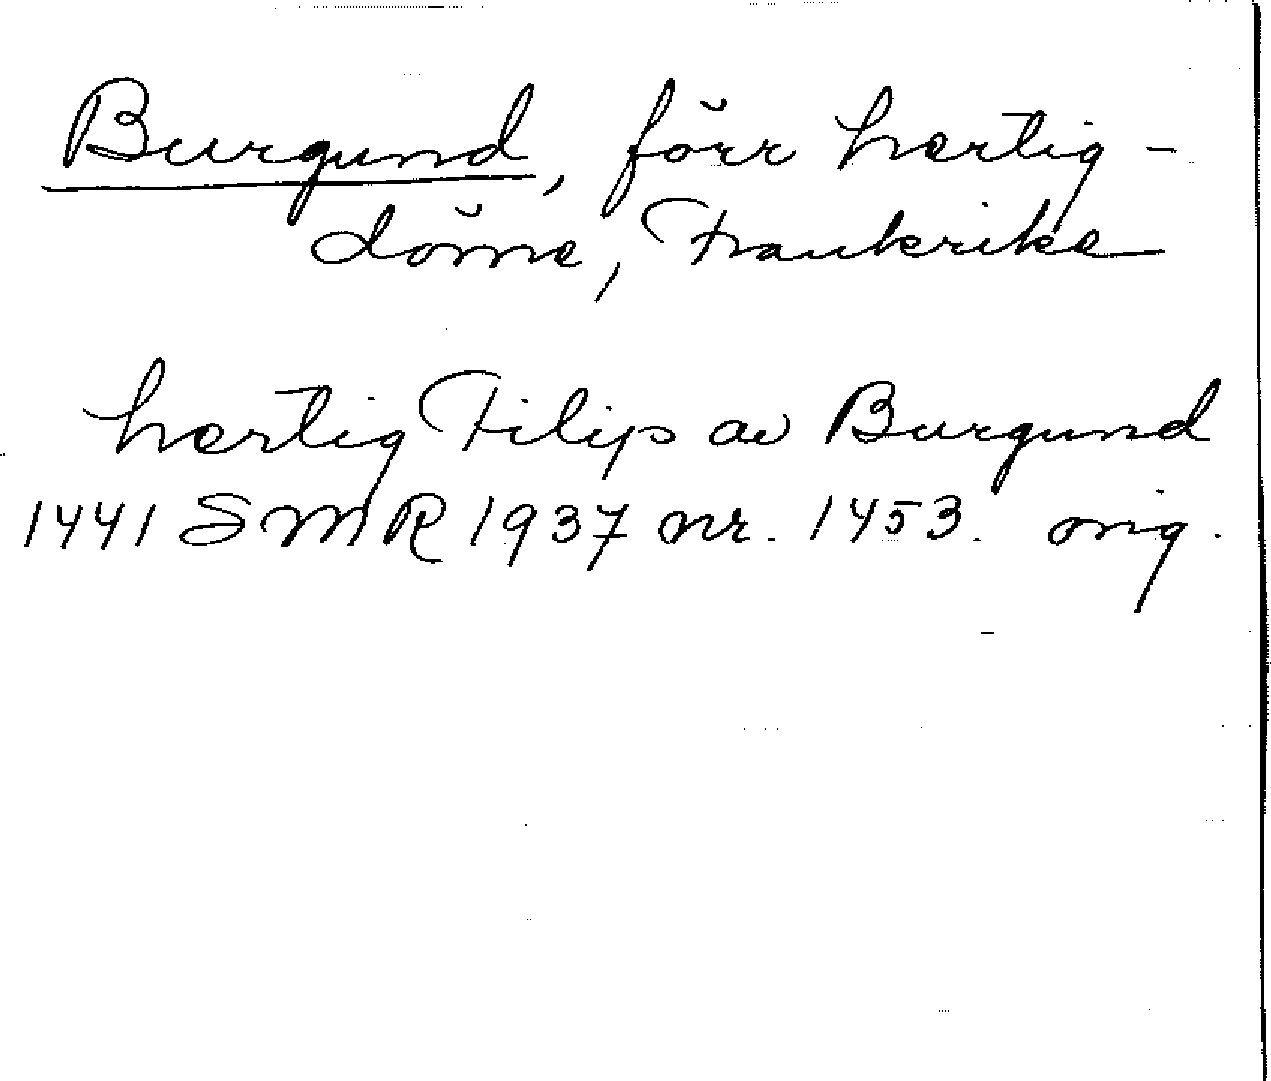 Burgund, förr hertig-
döme, Frankrike
hertig Filip av Burgund
1441 SMR 1937 nr. 1453. orig.